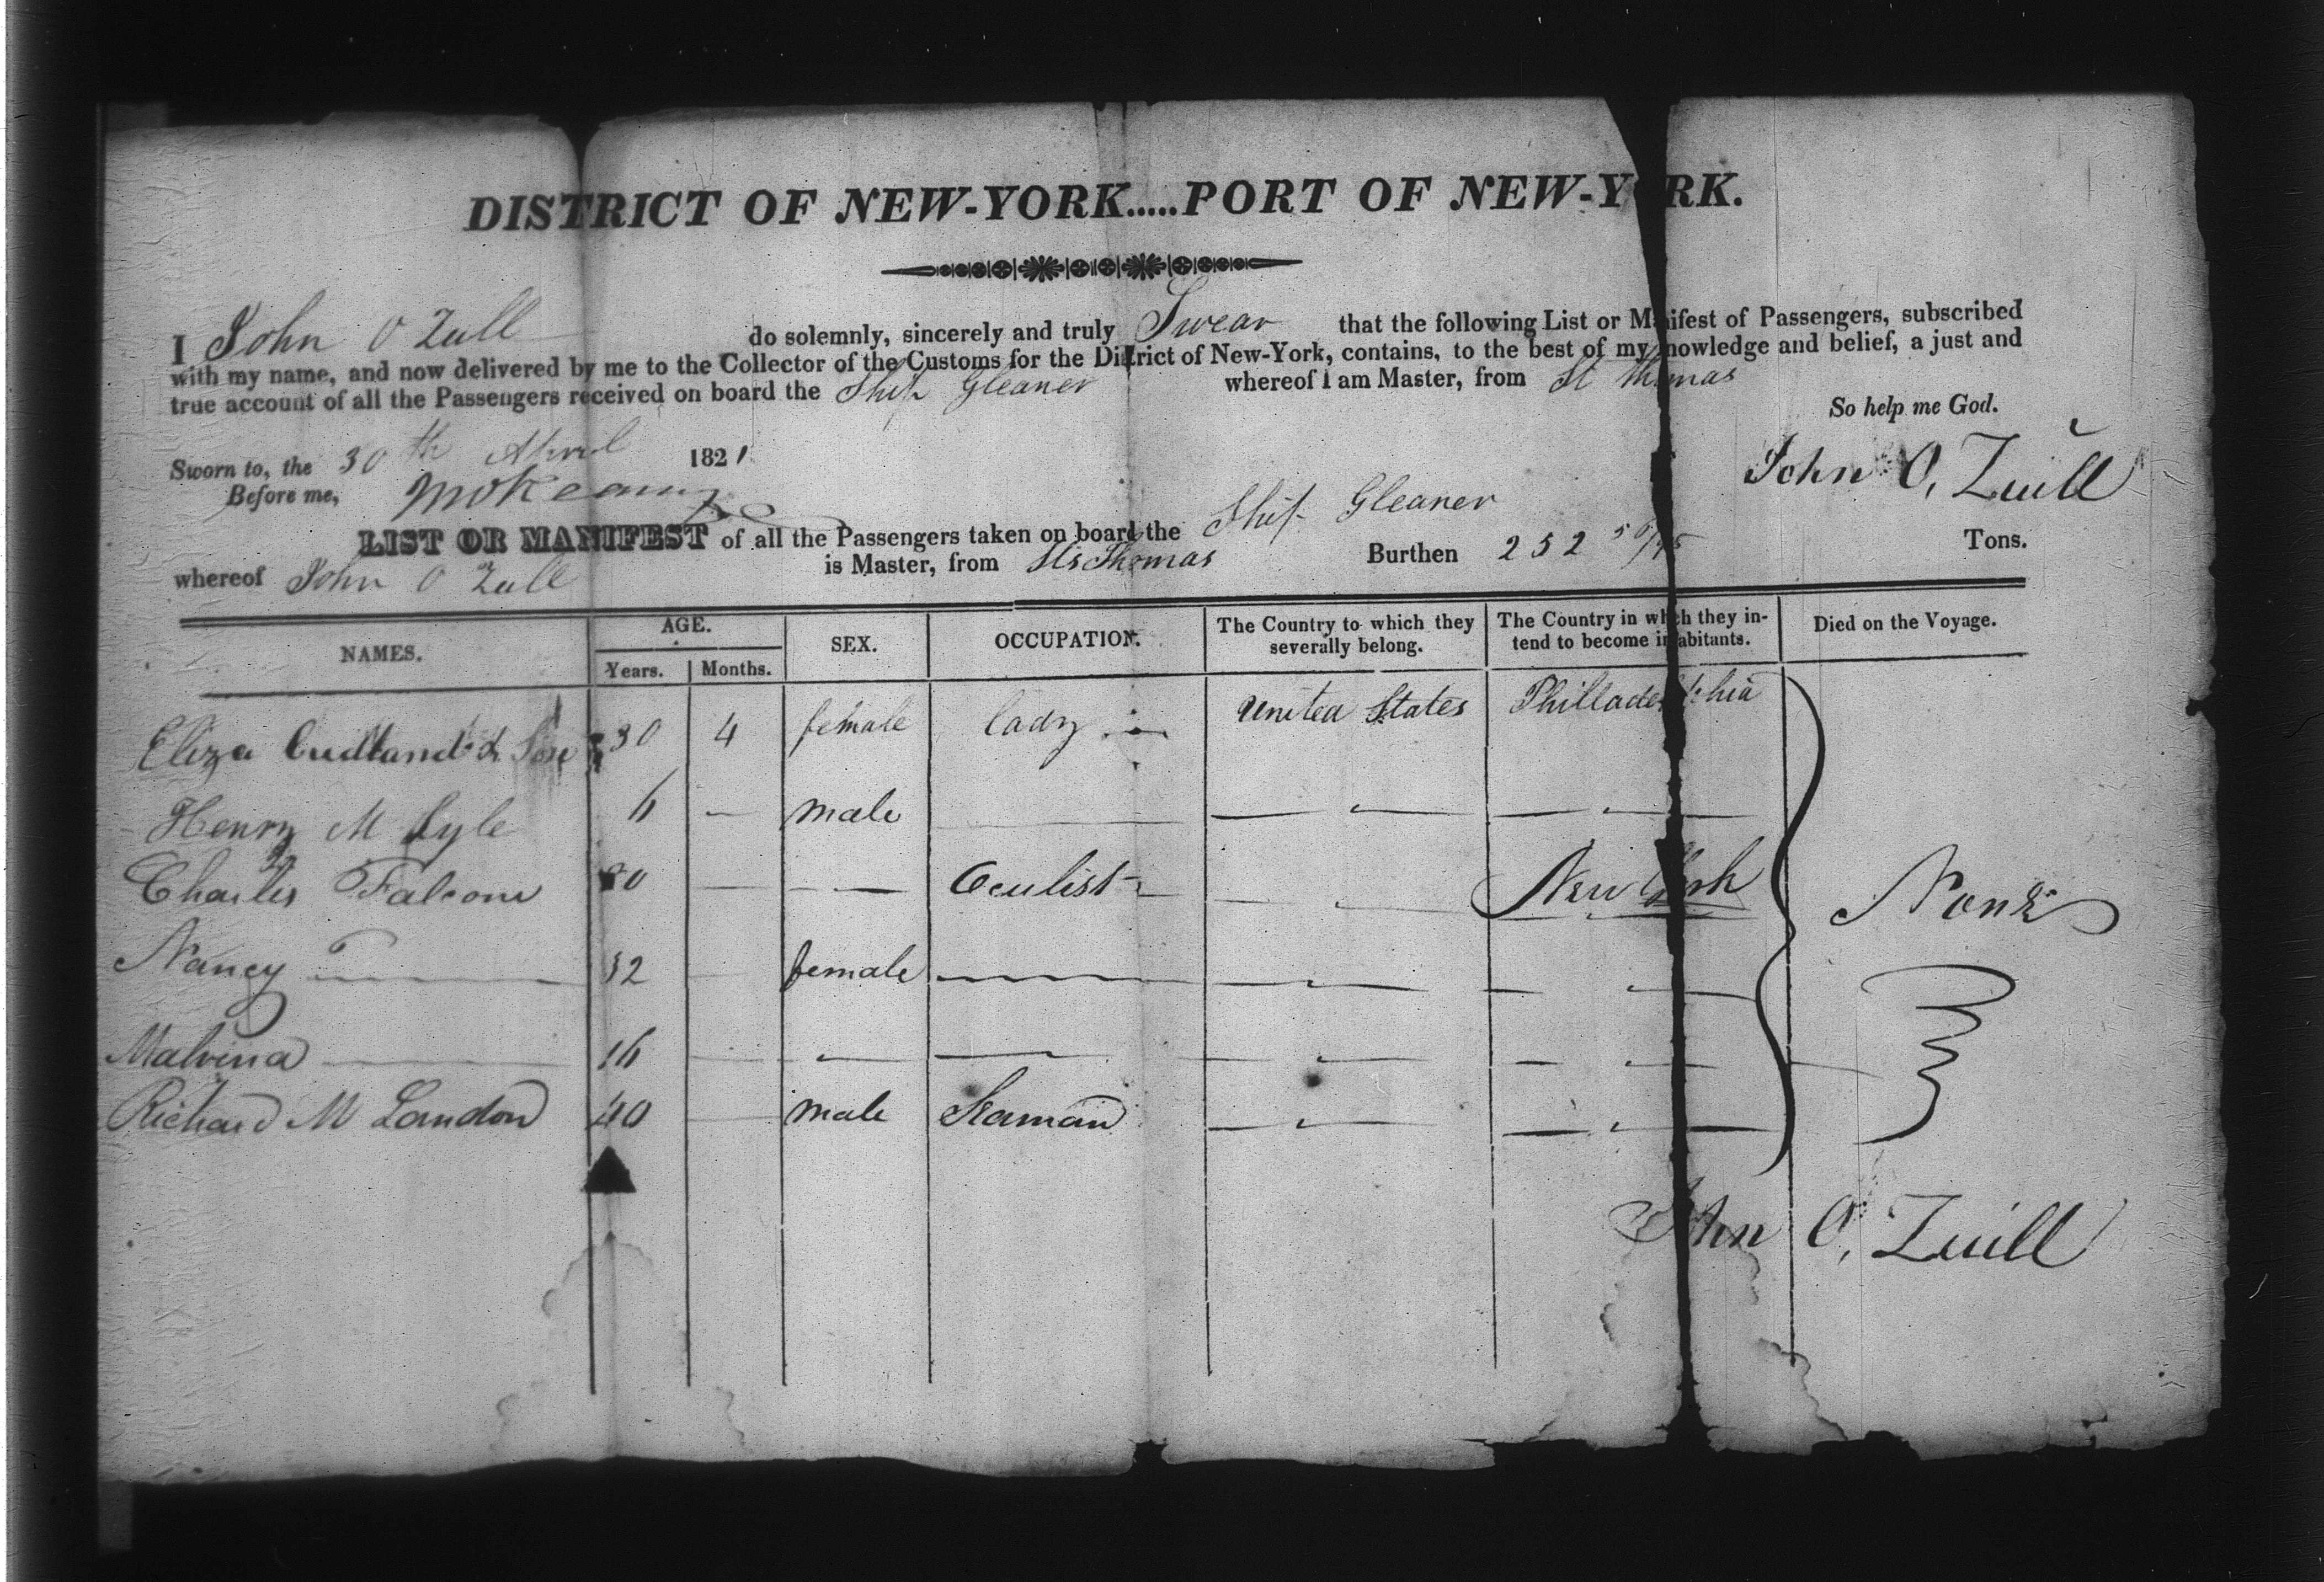 DISTRICT OF NEW-YORK.....PORT OF NEW-YRK.
I John O Zull do solemnly, sincerely and truly Swear that the following List or Mnifest of Passengers, subscribed
with my name, and now delivered by me to the Collector of the Customs for the District of New-York, contains, to the best of my nowledge and belief, a just and
true account of all the Passengers received on board the Ship Gleaner whereof I am Master, from St Thomas
So help me God.
Sworn to, the 30th April 1821
John O, Zuill
Before me,
LIST OR MANIFEST of all the Passengers taken on board the Ship Gleaner
whereof John O Zull is Master, from Sts Thomas Burthen 252 Tons.
NAMES. AGE. SEX. OCCUPATION. The Country to which they severally belong. The Country in which they intend to become inabitants. Died on the Voyage.
Years. Months.
Eliza & Son 30 4 female lady United States Philladelphia
Henry M Lyle 6 male
Charles Falcone Oculist New York None
Nancy 32 female
Malvina 16
Richard M Landon 40 male Seaman
John O, Zuill